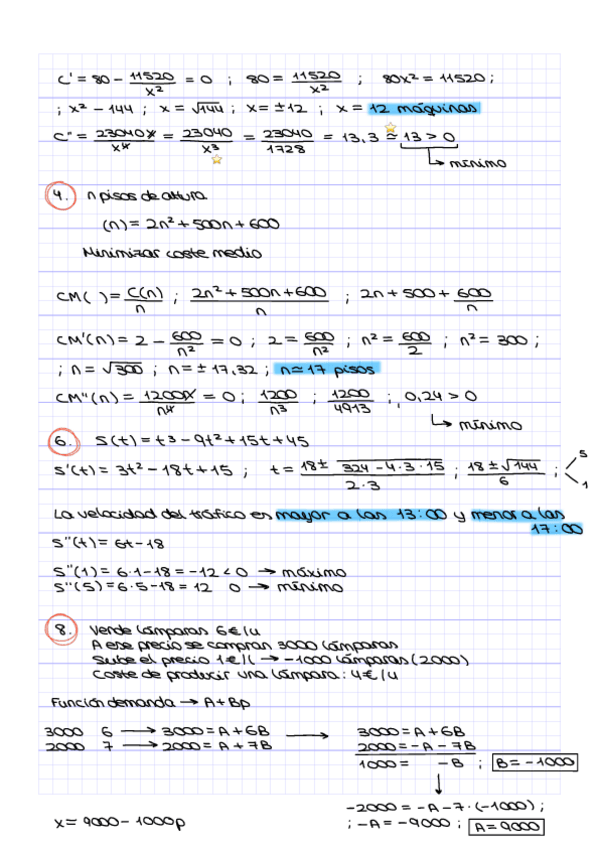 C' = 80 - 11520/x² = 0 ; 80 = 11520/x² ; 80x² = 11520 ;
; x² - 144 ; x = √144 ; x = ±12 ; x = 12 máquinas
C'' = 23040x/x⁴ = 23040/x³ = 23040/1728 = 13,3 ≃ 13 > 0
↳ mínimo
4. n pisos de altura
(n) = 2n² + 500n + 600
Minimizar coste medio
CM( ) = C(n)/n ; 2n² + 500n + 600/n ; 2n + 500 + 600/n
CM'(n) = 2 - 600/n² = 0 ; 2 = 600/n² ; n² = 600/2 ; n² = 300 ;
; n = √300 ; n = ± 17,32 ; n ≃ 17 pisos
CM''(n) = 1200n/n⁴ = 0 ; 1200/n³ ; 1200/4913 ; 0,24 > 0
↳ mínimo
6. S(t) = t3 - 9t² + 15t + 45
S'(t) = 3t² - 18t + 15 ; t = 18 ± √324 - 4·3·15/2·3 ; 18 ± √144/6 ; 5 1
La velocidad del tráfico es mayor a las 13:00 y menor a las
17:00
S''(t) = 6t - 18
S''(1) = 6·1 - 18 = -12 < 0 → máximo
S''(5) = 6·5 - 18 = 12 0 → mínimo
8. Vende lámparas 6€/u
A ese precio se compran 3000 lámparas
Sube el precio 1€/l → -1000 lámparas (2000)
Coste de producir una lámpara: 4€/u
Función demanda → A + Bp
3000 6 → 3000 = A + 6B → 3000 = A + 6B
2000 7 → 2000 = A + 7B 2000 = -A - 7B
1000 = -B ; B = -1000
-2000 = -A - 7·(-1000) ;
x = 9000 - 1000p ; -A = -9000 ; A = 9000